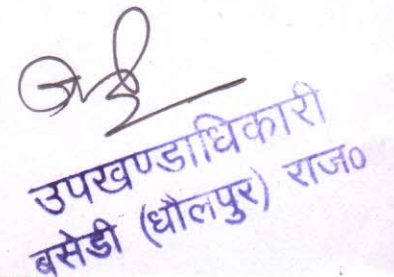 उपखण्डाधिकारी
बसेडी (धौलपुर) राज०